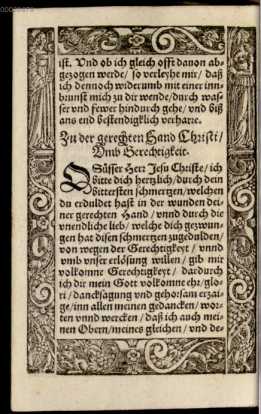 ist. Vnd ob ich gleich offt dauon ab-
gezogen werde/ so verleyhe mir/ daß
ich dennoch widerumb mit einer inn-
brunst mich zu dir wende/ durch was-
ser vnd fewer hindurch gehe/ vnd biß
ans end bestendigklich verharre.
Zu der gerechten Hand Christi/
Vmb Gerechtigkeit.
O Süsser Herr Jesu Christe/ ich
bitte dich hertzlich/ durch den
bittersten schmertzen/ welchen
du erduldet hast in der wunden dei-
ner gerechten Hand/ vnnd durch die
vnendliche lieb/ welche dich gezwun-
gen hat disen schmertzen zugedulden/
von wegen der Gerechtigkeyt/ vnnd
vmb vnser erlösung willen/ gib mir
volkomne Gerechtigkeyt/ dardurch
ich dir mein Gott volkomne ehr/ glo-
ri/ dancksagung vnd gehorsam erzai-
ge/ inn allen meinen gedancken/ wor-
ten vnnd wercken/ daß ich auch mei-
nen Obern/ meines gleichen/ vnd de-